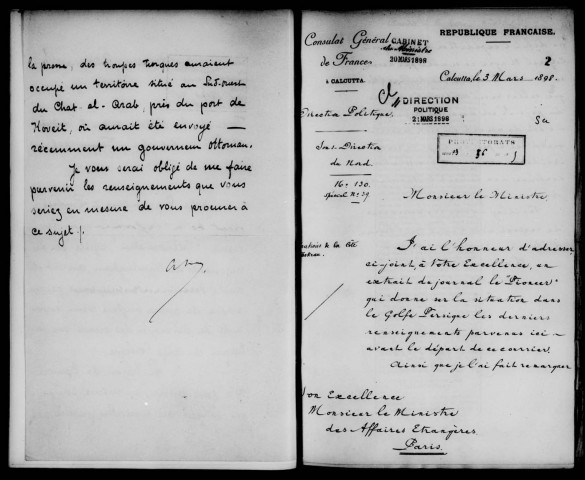 la presse, des troupes turques auraient
occupé un territoire situé au Sud-ouest
du Chat-el-Arab, près du port de
Koveit, où aurait été envoyé —
récemment un gouverneur Ottoman.
Je vous serai obligé de me faire
parvenir les renseignements que vous
seriez en mesure de vous procurer à
ce sujet /.
Consulat Général
de France
à CALCUTTA.
CABINET
du Ministre
20 MARS 1898
REPUBLIQUE FRANÇAISE.
2
Calcutta, le 3 Mars 1898.
DIRECTION
POLITIQUE
21 MARS 1898
Direction Politique.
Sous-Direction
du Nord.
PROTECTORATS
No 130.
spécial No 29.
Monsieur le Ministre,
J'ai l'honneur d'adresser
ci-joint, à Votre Excellence, un
extrait de journal le "Pioneer"
qui donne sur la situation dans
le Golfe Persique les derniers
renseignements parvenus ici —
avant le départ de ce courrier.
Ainsi que je l'ai fait remarquer
Son Excellence
Monsieur le Ministre
des Affaires Etrangères.
Paris.